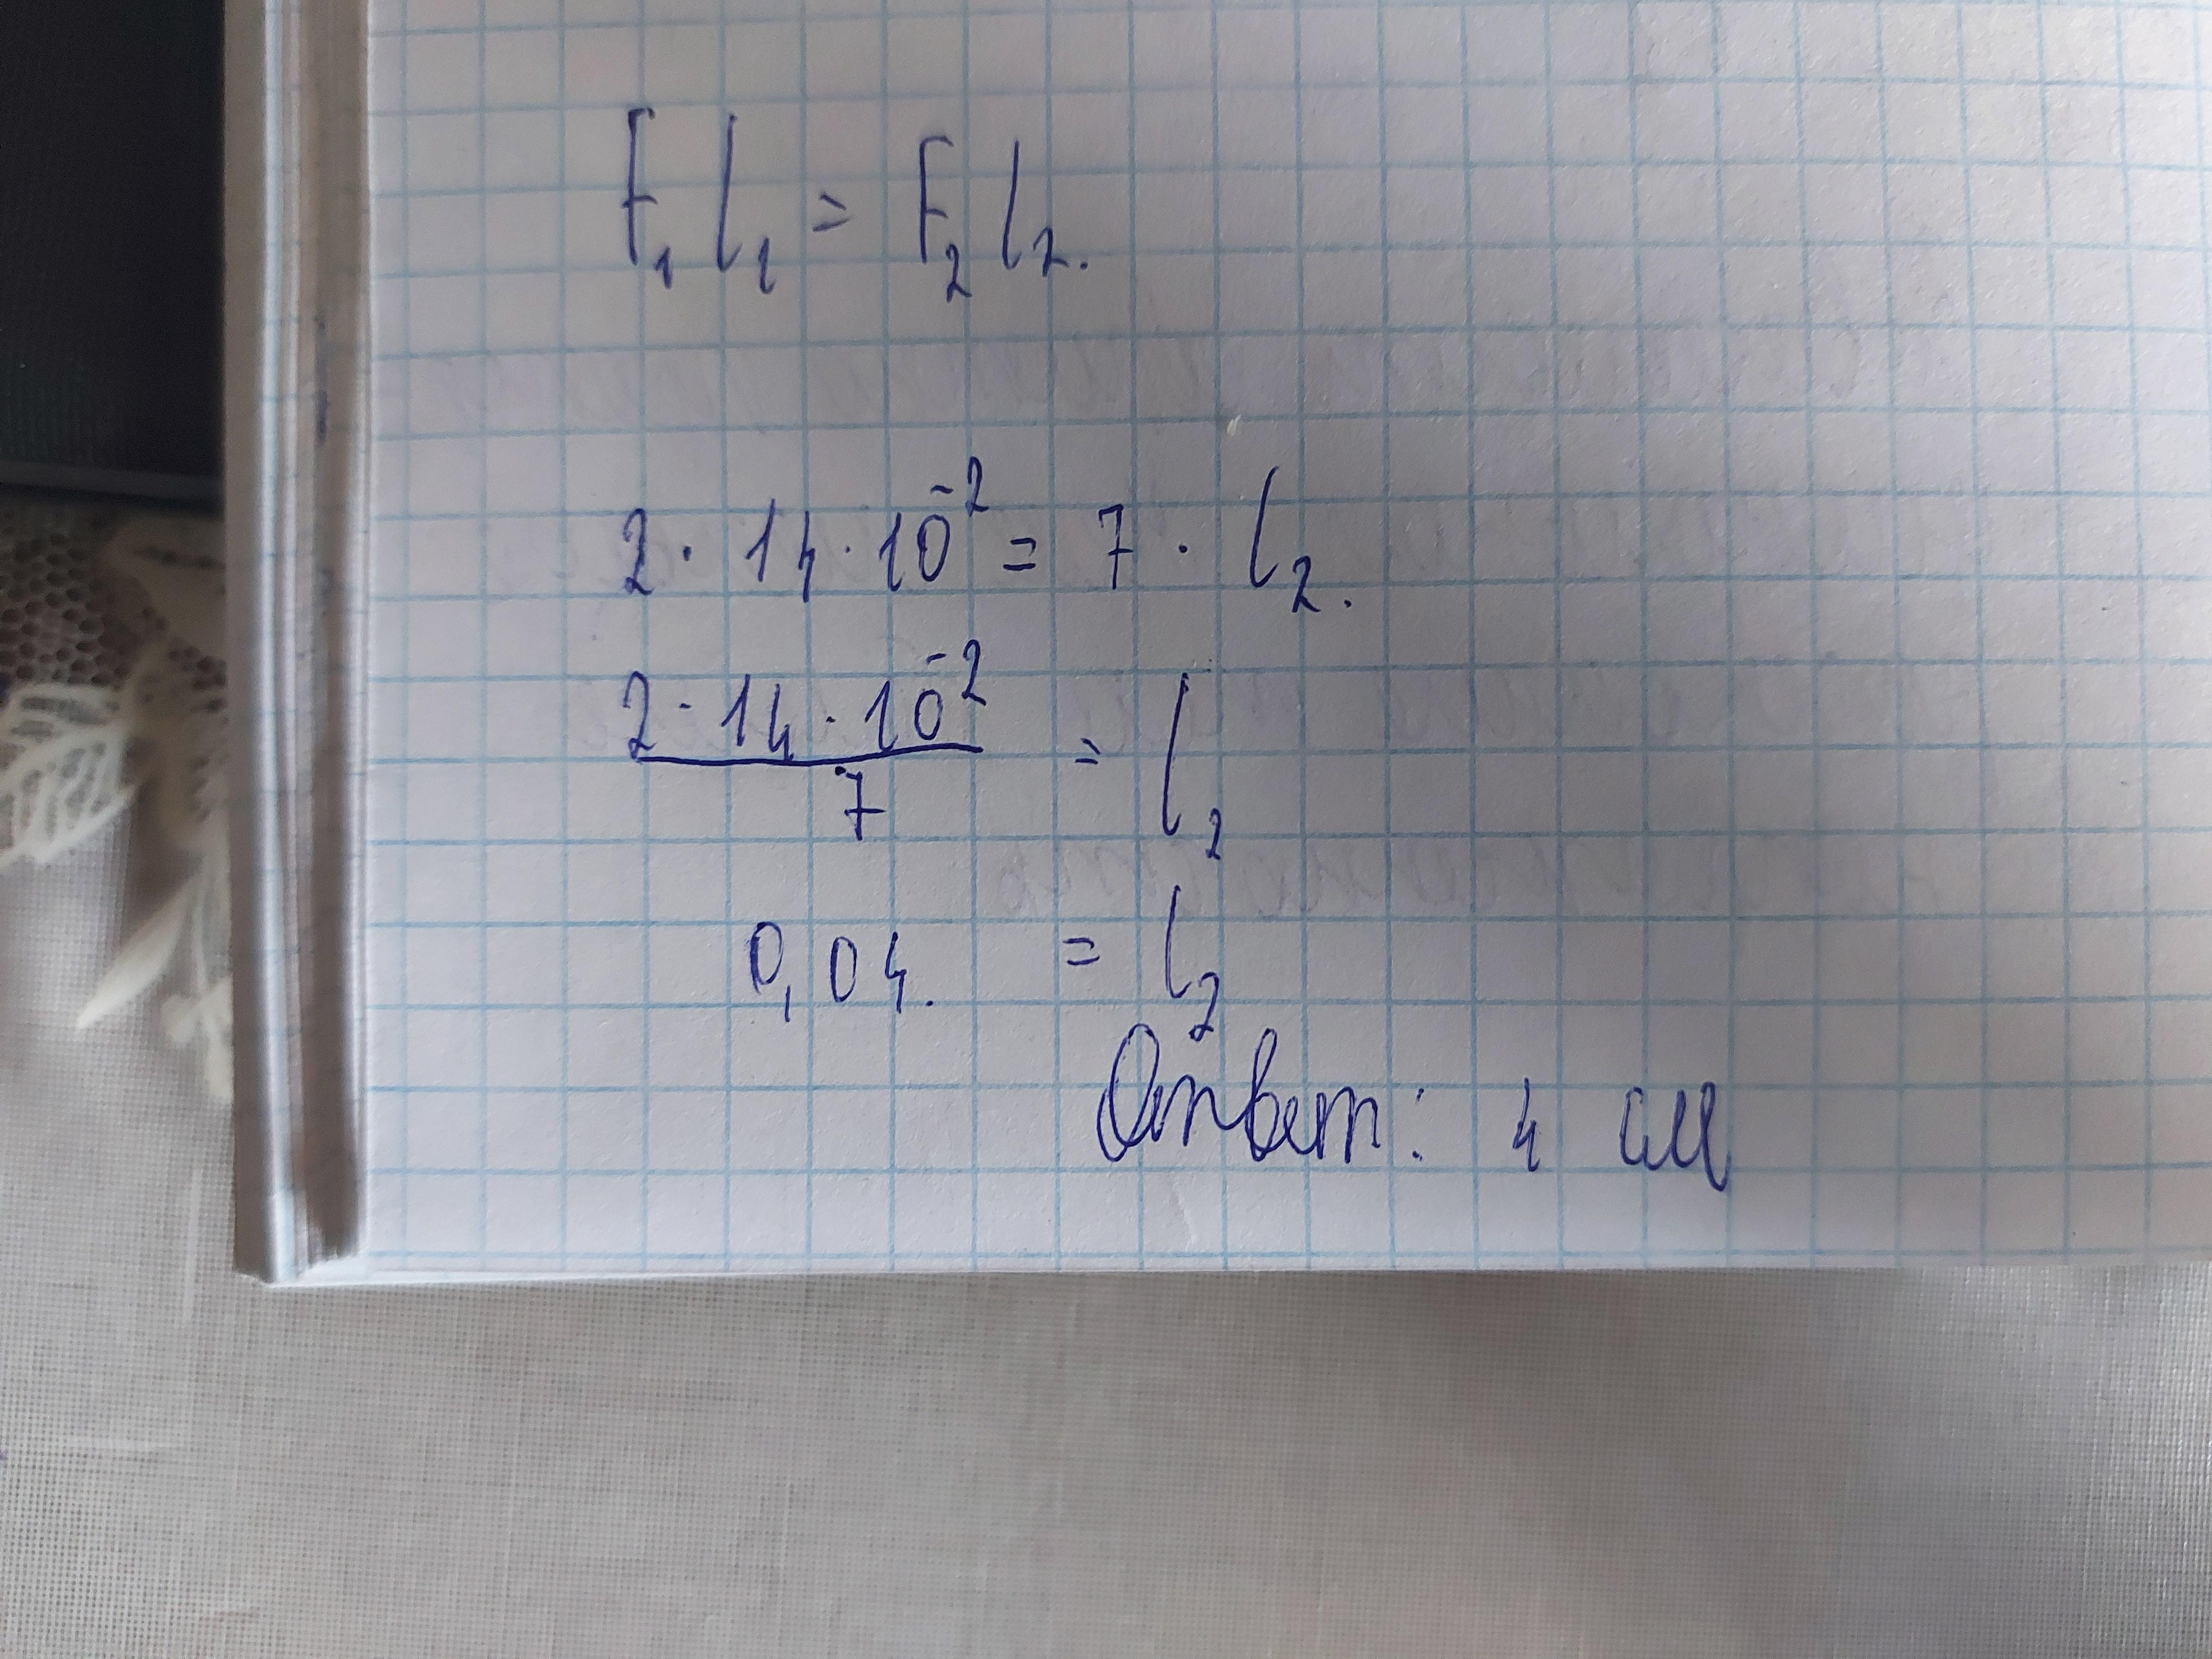 F₁ l₁ = F₂ l₂.
2 · 14 · 10⁻² = 7 · l₂.
2 · 14 · 10⁻² / 7 = l₂
0,04. = l₂
Ответ: 4 см